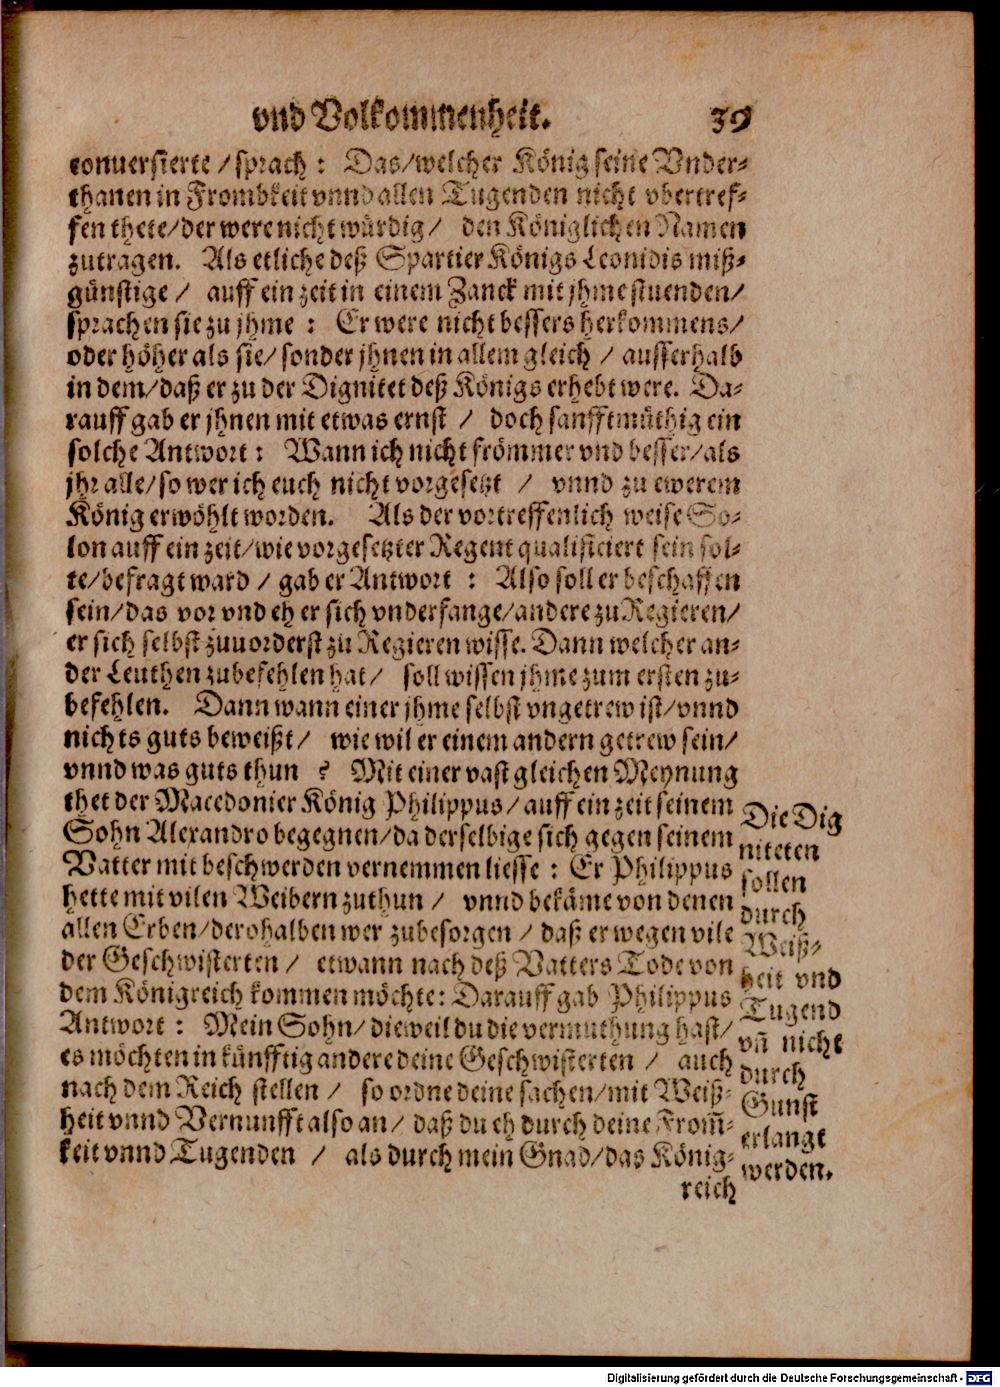 vnd Volkommenheit. 39
conuersierte / sprach : Das/welcher König seine Vnder-
thanen in Frombkeit vnnd allen Tugenden nicht vbertref-
fen thete/der were nicht würdig / den Königlichen Namen
zutragen. Als etliche deß Spartier Königs Leonidis miß-
günstige / auff ein zeit in einem Zanck mit jhme stuenden/
sprachen sie zu jhme : Er were nicht bessers herkommens/
oder höher als sie/ sonder jhnen in allem gleich / ausserhalb
in dem/daß er zu der Dignitet deß Königs erhebt were. Da-
rauff gab er jhnen mit etwas ernst / doch sanfftmüthig ein
solche Antwort : Wann ich nicht frömmer vnd besser/als
jhr alle/so wer ich euch nicht vorgesetzt / vnnd zu ewerem
König erwöhlt worden. Als der vortreffenlich weise So-
lon auff ein zeit/wie vorgesetzter Regent qualificiert sein sol-
te/befragt ward / gab er Antwort : Also soll er beschaffen
sein/das vor vnd eh er sich vnderfange/andere zu Regieren/
er sich selbst zuuorderst zu Regieren wisse. Dann welcher an-
der Leuthen zubefehlen hat/ soll wissen jhme zum ersten zu-
befehlen. Dann wann einer jhme selbst vngetrew ist/vnnd
nichts guts beweißt/ wie wil er einem andern getrew sein/
vnnd was guts thun ? Mit einer vast gleichen Meynung
thet der Macedonier König Philippus/auff ein zeit seinem
Sohn Alexandro begegnen/da derselbige sich gegen seinem
Vatter mit beschwerden vernemmen liesse : Er Philippus
hette mit vilen Weibern zuthun / vnnd bekäme von denen
allen Erben/derohalben wer zubesorgen / daß er wegen vile
der Geschwisterten / etwann nach deß Vatters Tode von
dem Königreich kommen möchte: Darauff gab Philippus
Antwort : Mein Sohn/dieweil du die vermuthung hast/
es möchten in künfftig andere deine Geschwisterten / auch
nach dem Reich stellen / so ordne deine sachen/mit Weiß-
heit vnnd Vernunfft also an/ daß du eh durch deine From̃-
keit vnnd Tugenden / als durch mein Gnad/das König-
reich
Die Dig
niteten
sollen
durch
Weiß-
heit vnd
Tugend
vñ nicht
durch
Gunst
erlangt
werden.
Digitalisierung gefördert durch die Deutsche Forschungsgemeinschaft - DFG